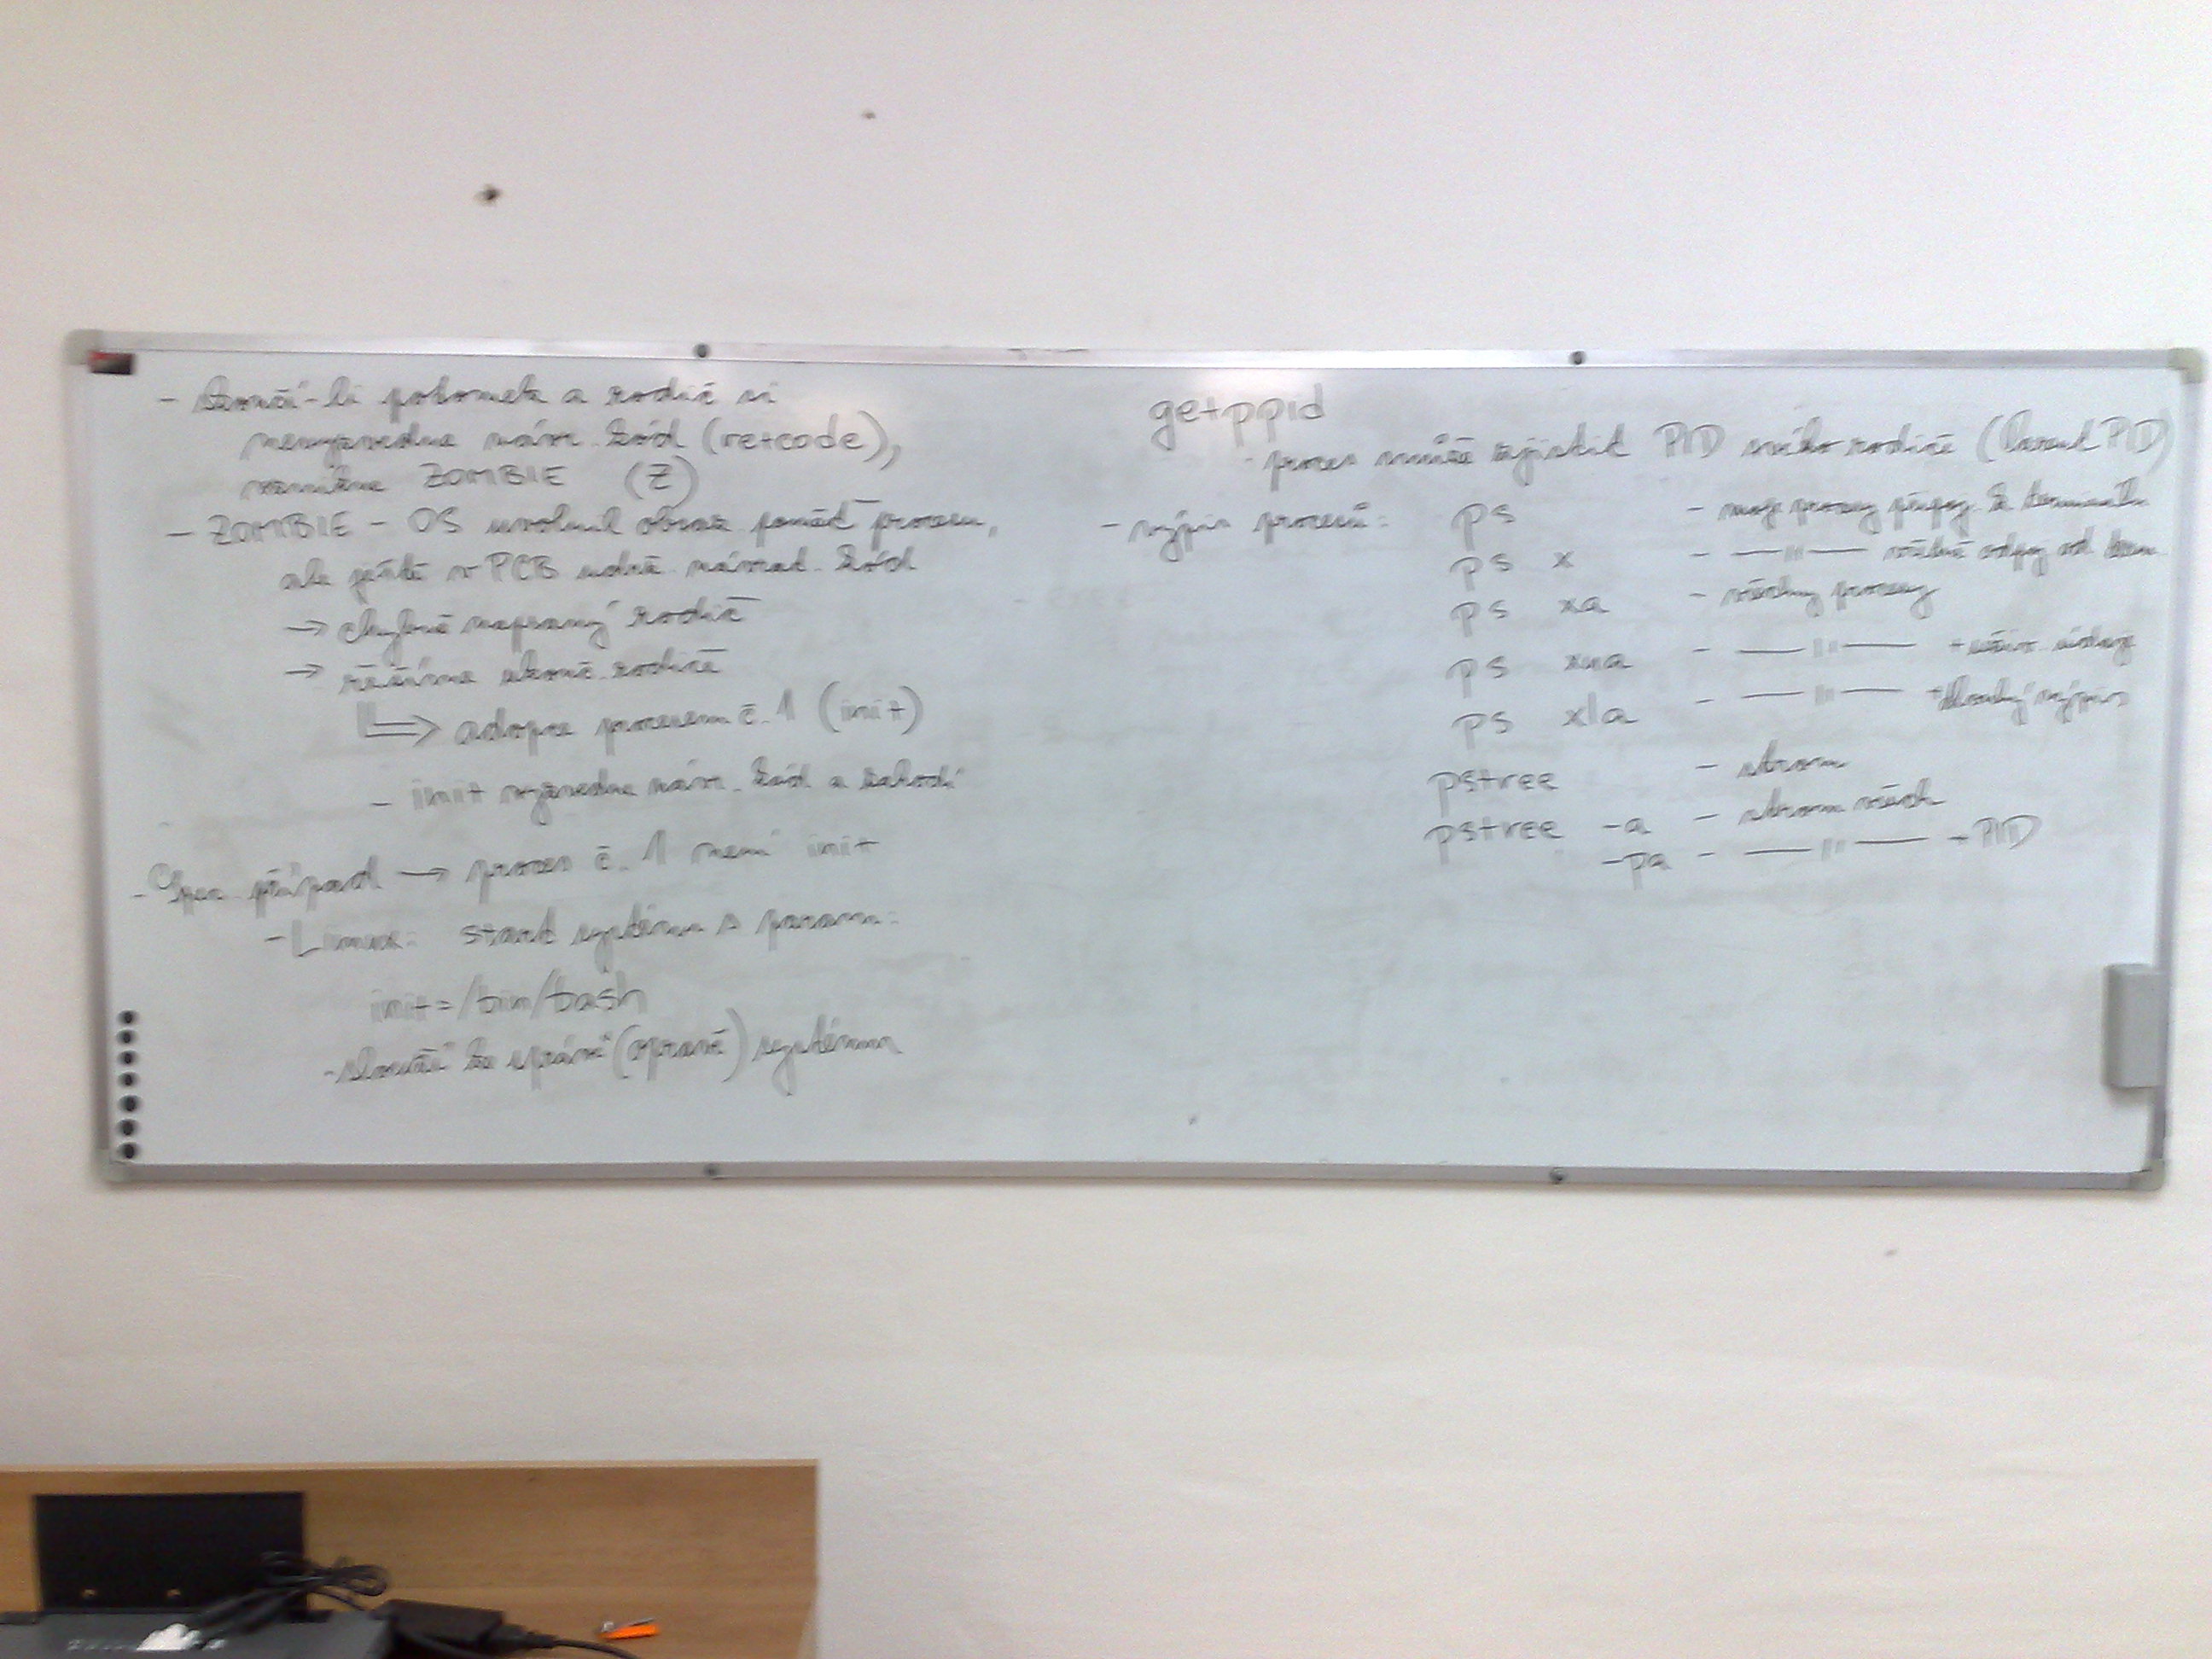 - Skončí-li potomek a rodič si
nevyzvedne návr. kód (retcode),
vznikne ZOMBIE (Z)
- ZOMBIE - OS uvolnil obraz paměť procesu,
ale ještě v PCB udrž. návrat. kód
→ chybně napsaný rodič
→ řešíme ukonč. rodiče
⇒ adopce procesem č. 1 (init)
- init vyzvedne návr. kód a zahodí
- Spec. případ → proces č. 1 není init
- Linux: start systému s param:
init=/bin/bash
- slouží ke správě (opravě) systému
getppid
- proces může zjistit PID svého rodiče (Parent PID)
- výpis procesů: ps - moje procesy připoj. k terminálu
ps x - —"— včetně odpoj od term.
ps xa - všechny procesy
ps xua - —"— + uživ. údaje
ps xla - —"— + dlouhý výpis
pstree - strom
pstree -a - strom všech
-pa - —"— + PID